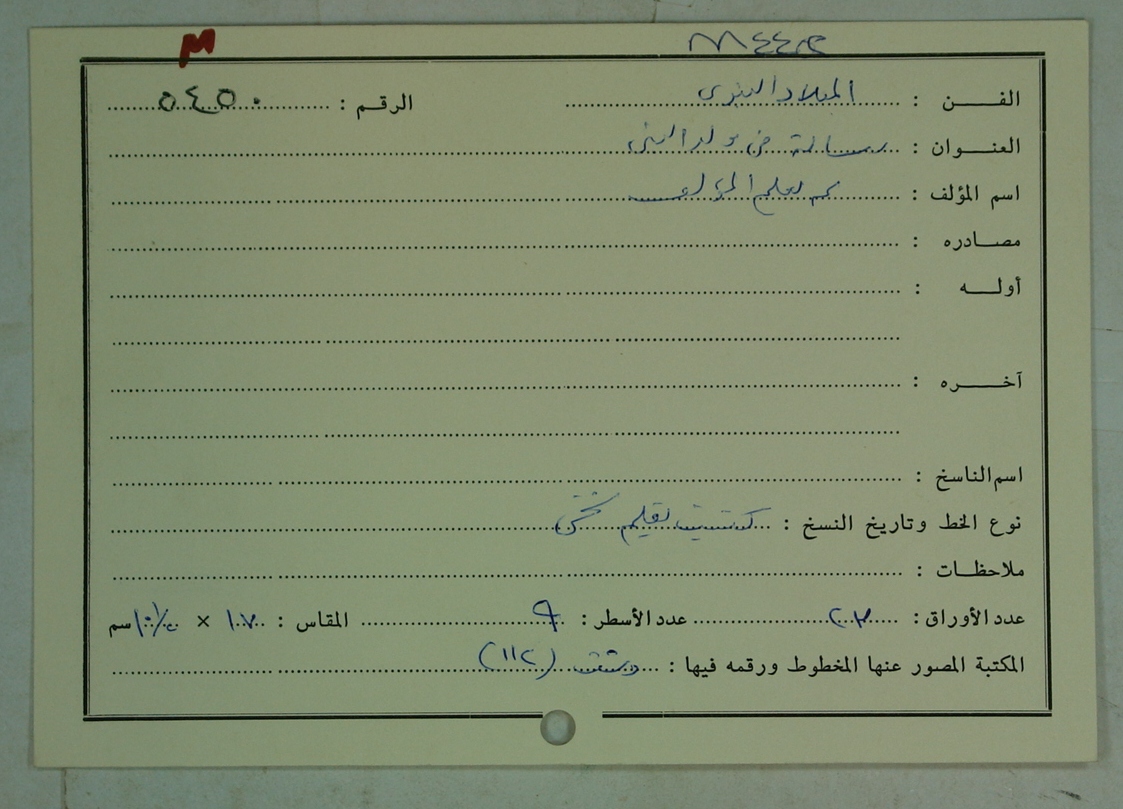 الفــن : الميلاد النبوي الرقم : ٥٤٥٠
العنــوان : رسالة في مولد النبي
اسم المؤلف : لم يعلم المؤلف
مصــادره :
أولــه :
آخــره :
اسم الناسخ :
نوع الخط وتاريخ النسخ : كتبت بقلم نسخي
ملاحظــات :
عدد الأوراق : ٢٣ عدد الأسطر : ٩ المقاس : ١٧ × سم
المكتبة المصور عنها المخطوط ورقمه فيها : دمشق (١١٢)